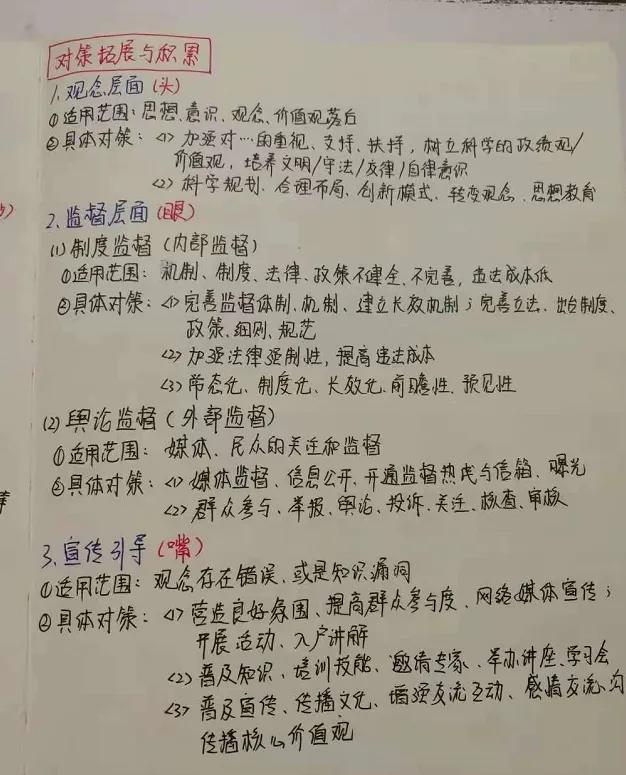 对策拓展与积累
1、观念层面(头)
①适用范围:思想、意识、观念、价值观落后
②具体对策:<1>加强对…的重视、支持、扶持,树立科学的政绩观/
价值观,培养文明/守法/友律/自律意识
<2>科学规划、合理布局、创新模式、转变观念、思想教育
2、监督层面(眼)
(1)制度监督(内部监督)
①适用范围:机制、制度、法律、政策不健全、不完善,违法成本低
②具体对策:<1>完善监督体制、机制、建立长效机制;完善立法、出台制度、
政策、细则、规范
<2>加强法律强制性,提高违法成本
<3>常态化、制度化、长效化、前瞻性、预见性
(2)舆论监督(外部监督)
①适用范围:媒体、民众的关注和监督
②具体对策:<1>媒体监督、信息公开、开通监督热线与信箱、曝光
<2>群众参与、举报、舆论、投诉、关注、核查、审核
3、宣传引导(嘴)
①适用范围:观念存在错误、或是知识漏洞
②具体对策:<1>营造良好氛围、提高群众参与度、网络媒体宣传;
开展活动、入户讲解
<2>普及知识、培训技能、邀请专家、举办讲座、学习会
<3>普及宣传、传播文化、增强交流互动、感情交流、沟
传播核心价值观